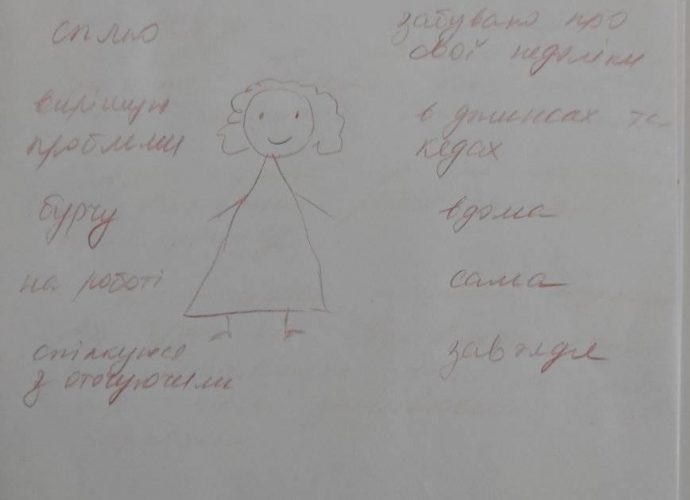 сплю
вирішую
проблеми
бурчу
на роботі
спілкуюсь
з оточуючими
забуваю про
свої недоліки
в джинсах та
кедах
вдома
сама
завжди